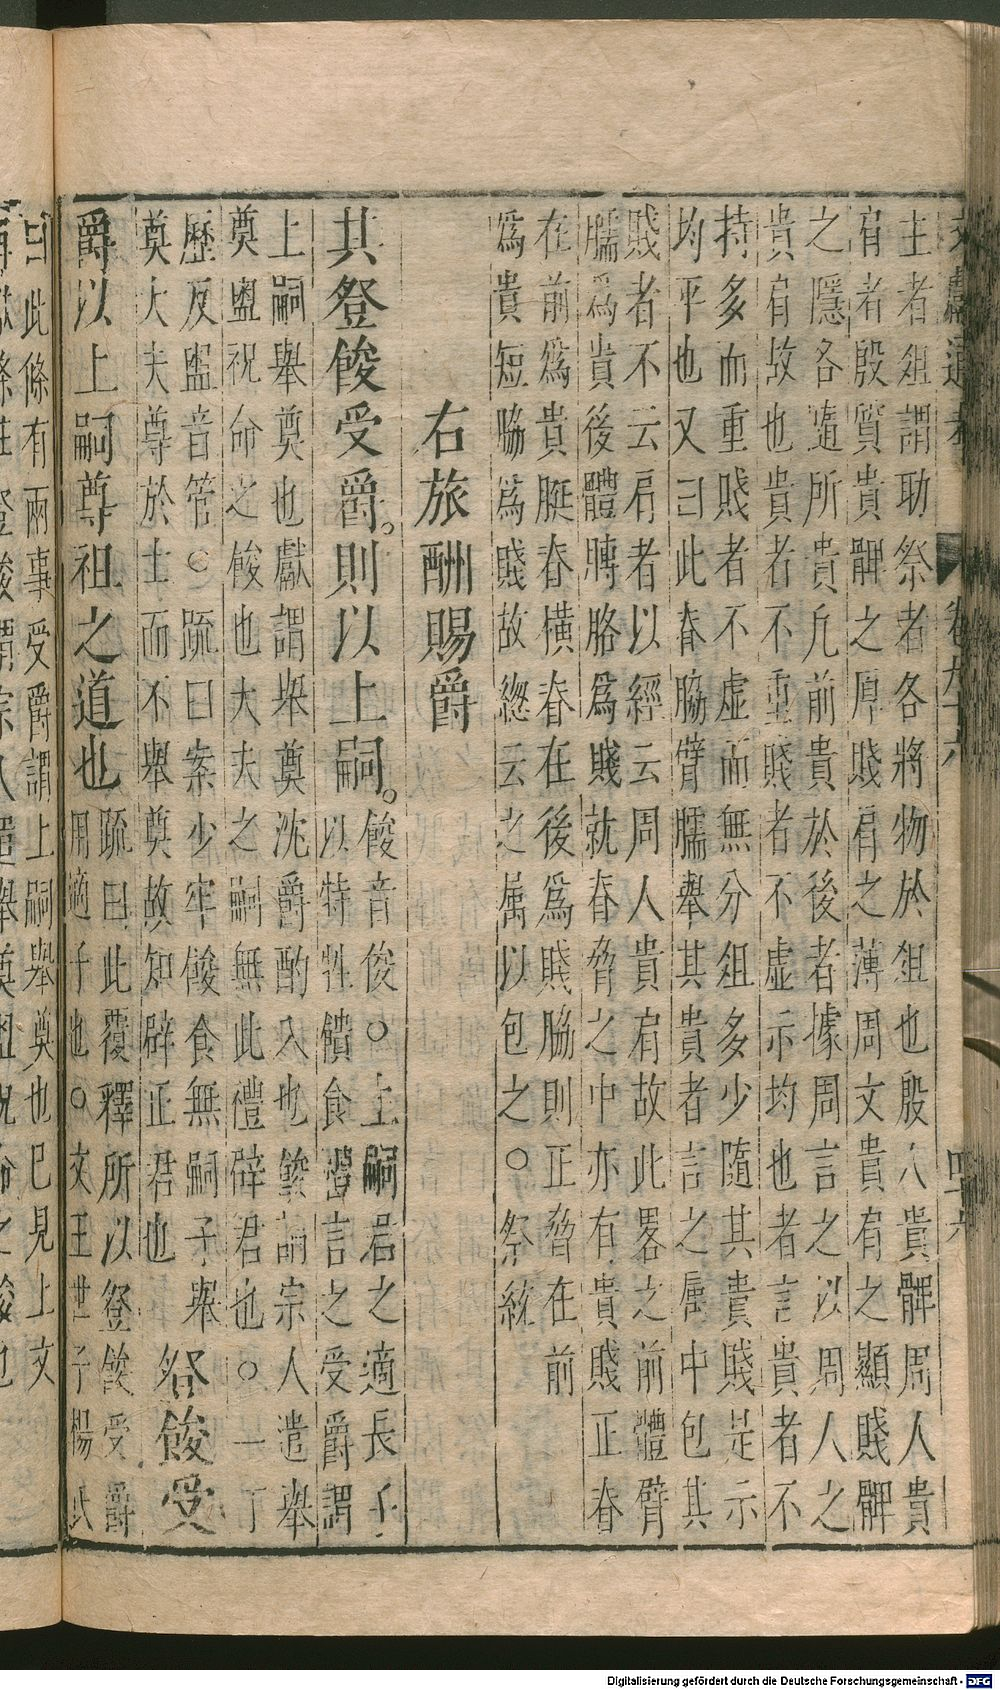 文獻通考　卷九十六　四十六
主者俎謂助祭者各將物於俎也殷人貴髀周人貴
肩者殷質貴髀之厚賤肩之薄周文貴有之顯賤髀
之隱各隨所貴凡前貴於後者據周言之以周人之
貴肩故也貴者不重賤者不虛示均也者言貴者不
持多而重賤者不虛而無分俎多少隨其貴賤是示
均平也又曰此脊脇臂臑舉其貴者言之屬中包其
賤者不云肩者以經云周人貴肩故此畧之前體臂
臑爲貴後體膞胳爲賤就脊脅之中亦有貴賤正脊
在前爲貴脡脊橫脊在後爲賤脇則正脅在前
爲貴短脇爲賤故緫云之属以包之○祭統
右旅酬賜爵
其登餕受爵。則以上嗣。
餕音俊○上嗣君之適長子
以特牲饋食禮言之受爵謂
上嗣舉奠也獻謂舉奠洗爵酌入也餕謂宗人遣舉
奠盥祝命之餕也大夫之嗣無此禮辟君也○一丁
歷反盥音管○疏曰案少牢餕食無嗣子舉
奠大夫尊於士而不舉奠故知辟正君也
登餕受
爵以上嗣尊祖之道也
疏曰此覆釋所以登餕受爵
用適子也○文王世子楊氏
曰此條有兩事受爵謂上嗣舉奠也已見上文
再獻條註登餕謂宗人遣舉奠盥祝命之餕也
Digitalisierung gefördert durch die Deutsche Forschungsgemeinschaft - DFG